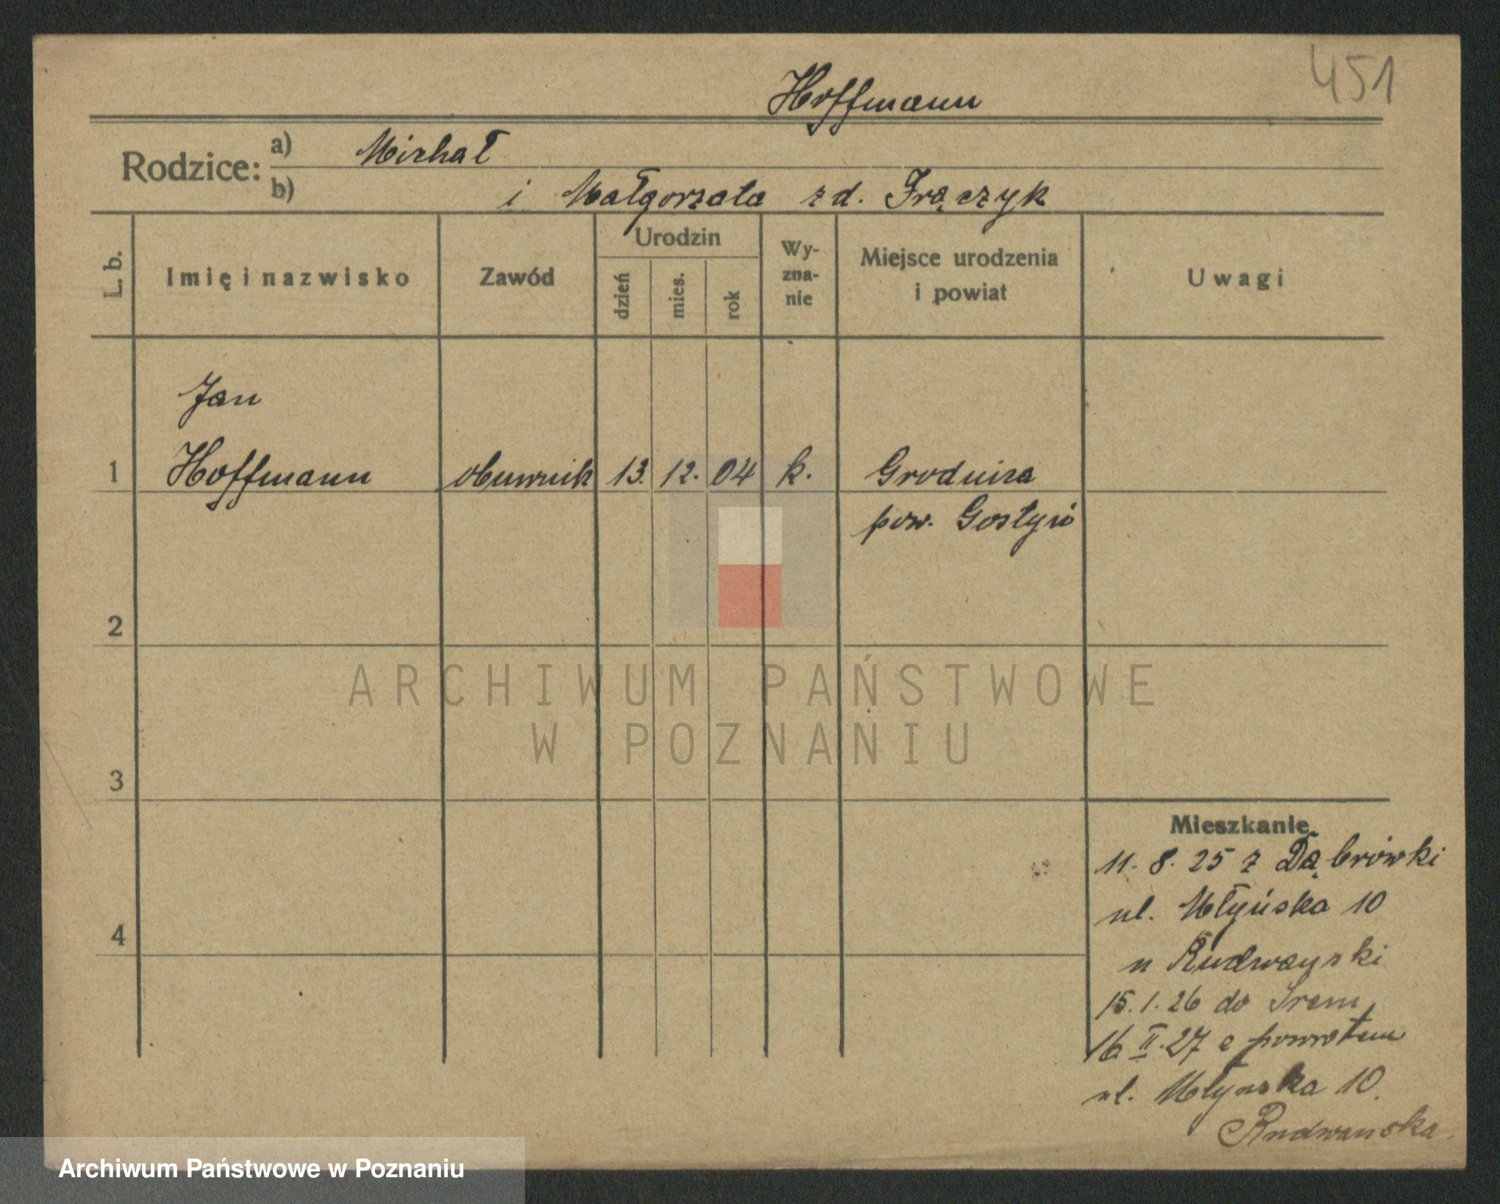 451
Hoffmann
Rodzice: a) Michał
b) i Małgorzata zd. Frączyk
L. b. Imię i nazwisko Zawód Urodzin dzień mies. rok Wy-zna-nie Miejsce urodzenia i powiat Uwagi
Jan
1 Hoffmann obuwnik 13. 12. 04 k. Grodnica
pow. Gostyń
2
ARCHIWUM PAŃSTWOWE
W POZNANIU
3
Mieszkanie
11. 8. 25 z Dąbrówki
4 ul. Młyńska 10
u Rudwański
15. 1. 26 do Śrem
16 II. 27 z powrotem
ul. Młyńska 10.
Rudwańska
Archiwum Państwowe w Poznaniu